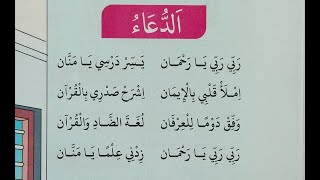 اَلدُّعَاءُ
رَبِّي رَبِّي يَا رَحْمَان يَسِّرْ دَرْسِي يَا مَنَّان
اِمْلَأْ قَلْبِي بِالْإِيمَان اِشْرَحْ صَدْرِي بِالْقُرْآن
وَفِّقْ دَوْمًا لِلْعِرْفَان لُغَةَ الضَّادِ وَالْقُرْآن
رَبِّي رَبِّي يَا رَحْمَان زِدْنِي عِلْمًا يَا مَنَّان